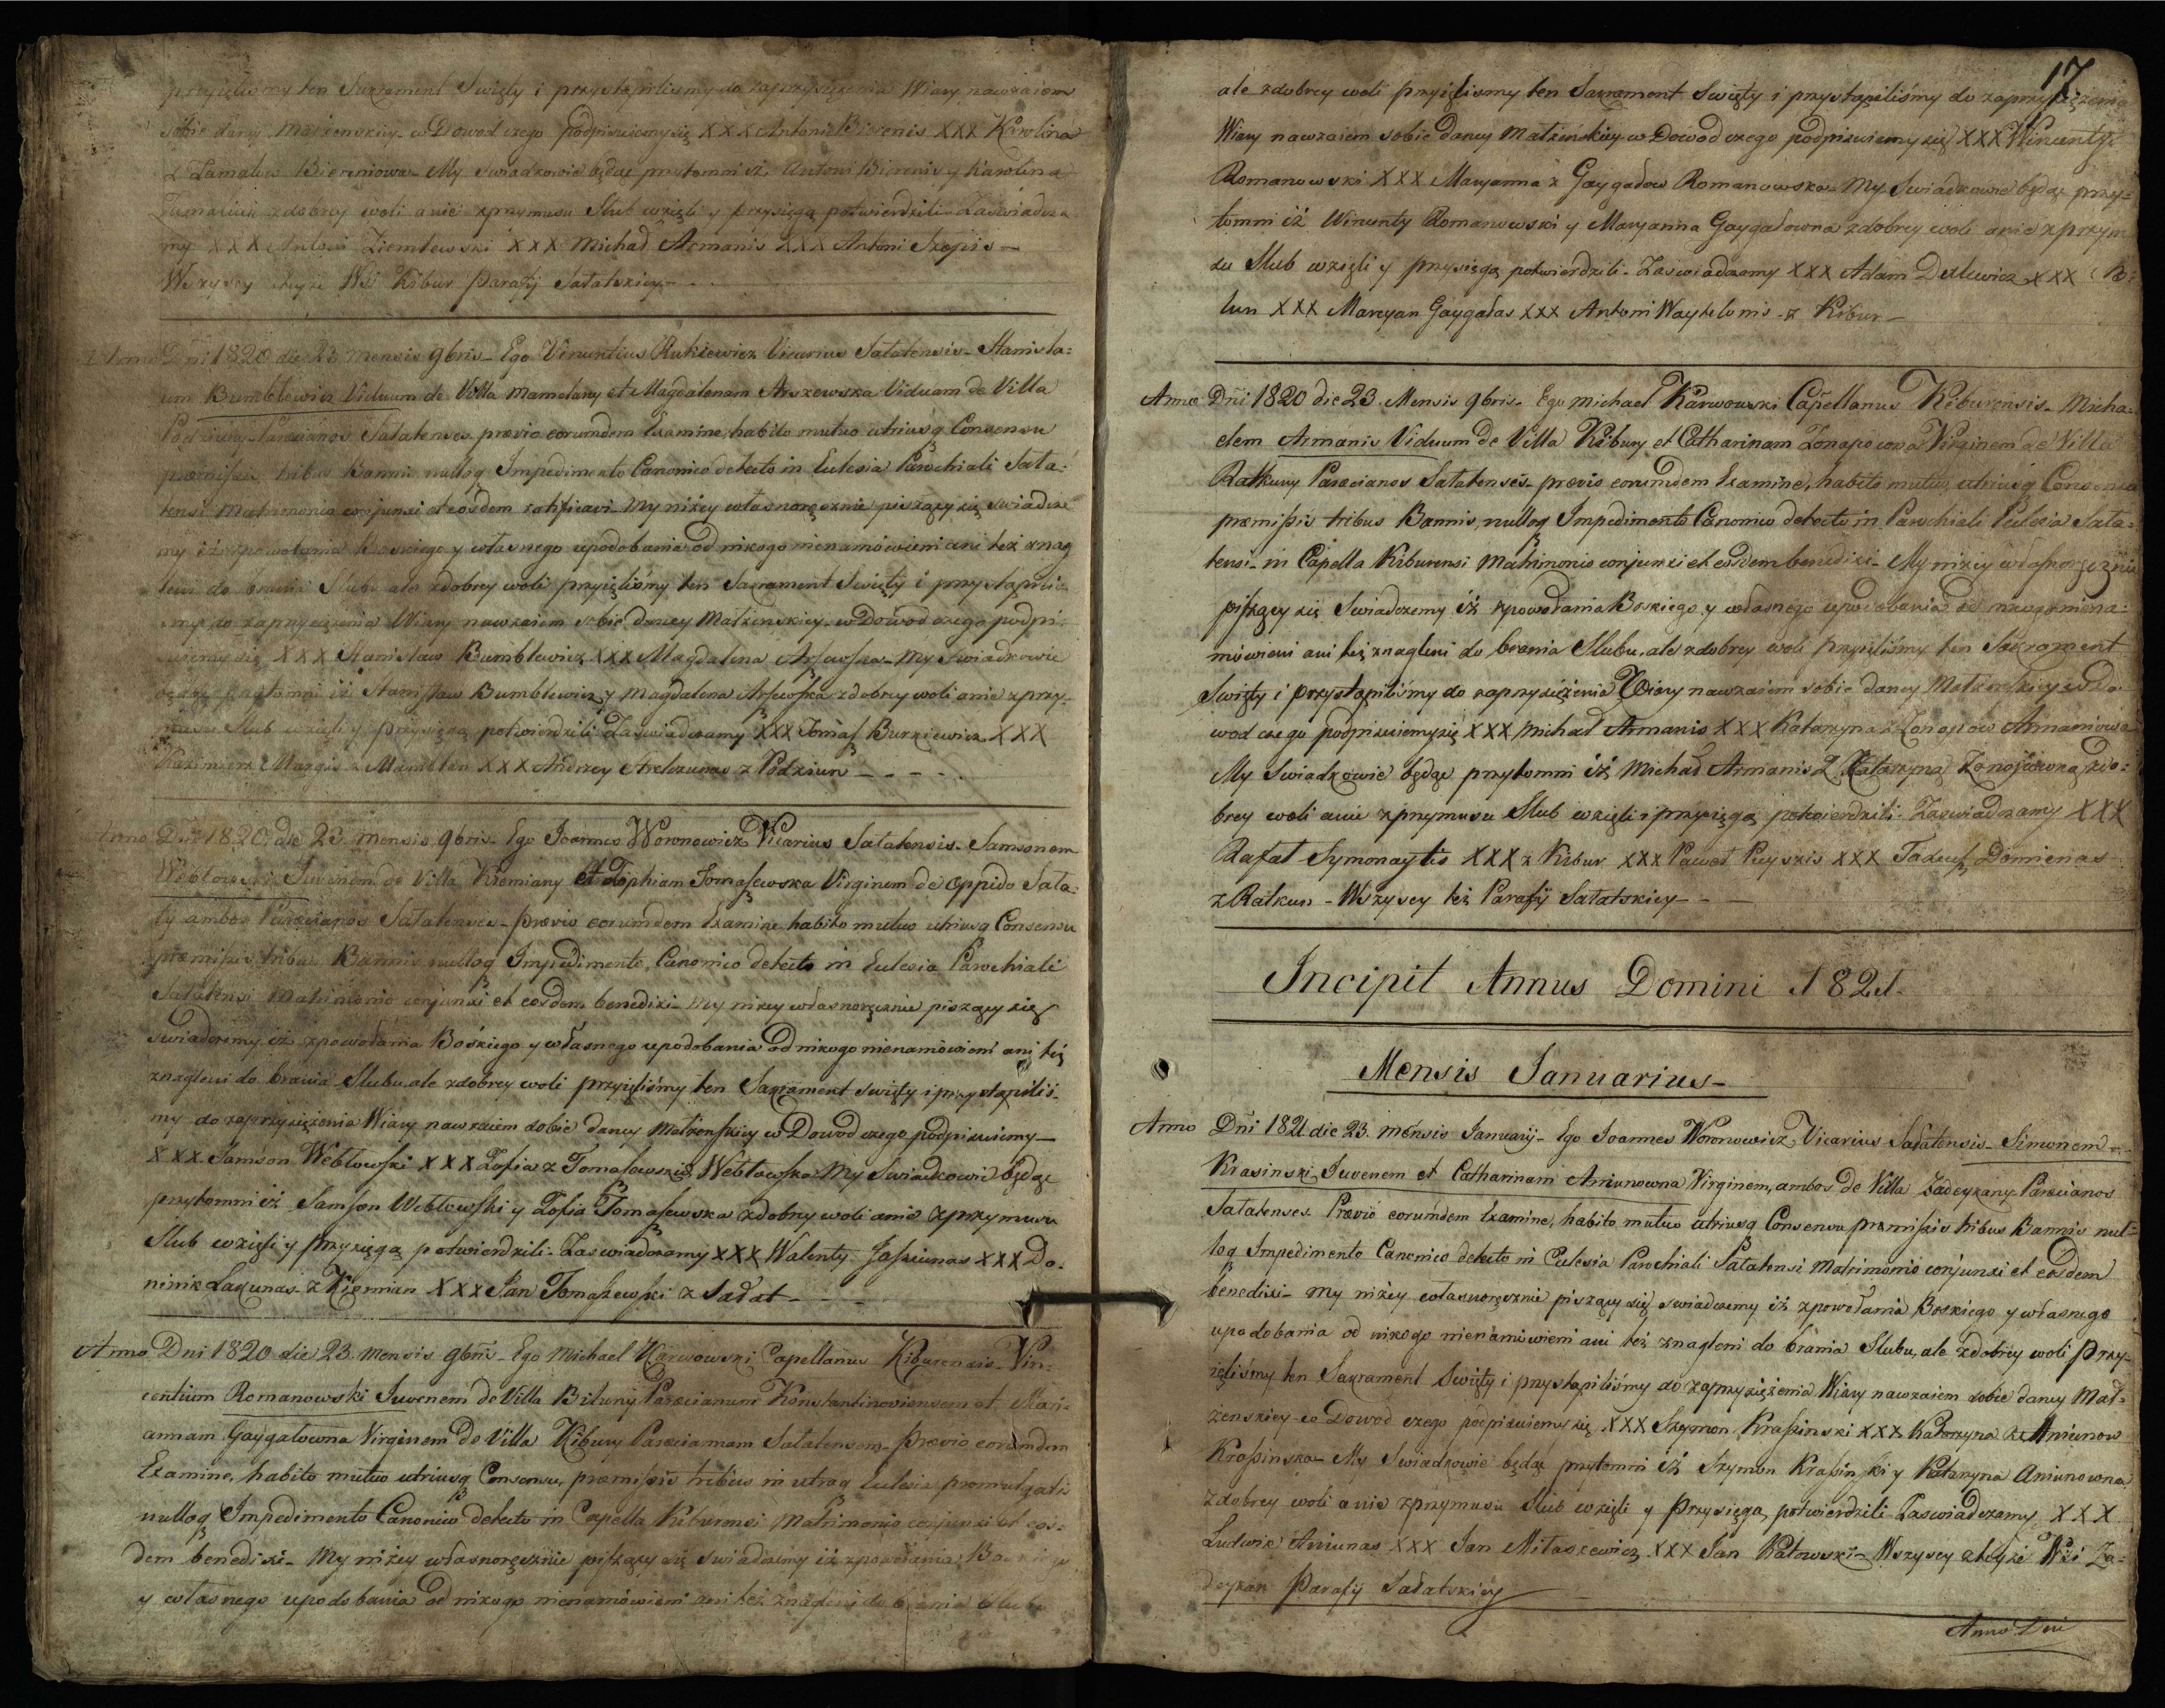 przyięlismy ten Sakrament Swięty i przystąpilismy do zaprzysiężenia Wiary nawzaiem
sobie daney Małżenskiey w Dowod czego podpisuiemy się XXX Antoni Bierenis XXX Karolina
z Bierniowa My swiadkowie będąc przytomni iż Antoni Bierenis y Karolina
zdobrey woli anie zprzymusu Slub wzięli y przysięgą potwierdzili Zaswiadcza
my XXX Antoni Ziemlewski XXX Michał Armanis XXX Antoni Szopis
Wszyscy teyże Wsi Kibur Parafij Sałatskiey
Anno Dni 1820 die 23 mensis 9bris Ego Vincentius Rukiewicz Vicarius Sałatensis Stanisla:
um Bumblewicz Viduum de Villa Mamelany et Magdalenam Arszewska Viduam de Villa
Podziuny Paræcianos Sałatenses prævio eorumdem Examine, habito mutuo utriusq Consensu
præmissis tribus Bannis nulloq Impedimento Canonico detecto in Eclesia Parochiali Sała:
tensi Matrimonio conjunxi et eosdem ratificavi My niżey własnoręcznie piszący się swiadcze
my iż zpowołania Boskiego y własnego upodobania od nikogo nienamówieni ani też znag
leni do brania Slubu ale zdobrey woli przyięliśmy ten Sakrament Swięty i przystąpiliś
my do zaprzysiężenia Wiary nawzaiem sobie daney Małżenskiey w Dowod czego podpi:
suiemy się XXX Stanisław Bumblewicz XXX Magdalena Arszewska My Swiadkowie
będąc przytomni iż Stanisław Bumblewicz y Magdalena Arszewska zdobrey woli anie zprzy:
musu Slub wzięli y przysięgą potwierdzili Zaswiadczamy XXX Tomasz Burkiewicz XXX
Kazimierz Margis z XXX Andrzey z Podziun
Anno Dni 1820 die 23 mensis 9bris Ego Joannes Woronowicz Vicarius Sałatensis Samsonem
Webłowski Juvenem de Villa Kiemiany et Zophiam Tomaszewska Virginem de oppido Sała:
ty ambos Paræcianos Sałatenses prævio eorumdem Examine habito mutuo utriusq Consensu
præmissis tribus Bannis nulloq Impedimento Canonico detecto in Eclesia Parochiali
Sałatensi Matrimonio conjunxi et eosdem benedixi My niżey własnoręcznie piszący się
swiadczemy iż zpowołania Boskiego y własnego upodobania od nikogo nienamówieni ani też
znagleni do brania Slubu ale zdobrey woli przyięliśmy ten Sakrament swięty i przystąpiliś-
my do zaprzysiężenia Wiary nawzaiem sobie daney Małżenskiey w Dowod czego podpisuiemy
XXX Samson Webłowski XXX Zofia z Tomaszewskich Webłowska My Swiadkowie będąc
przytomni iż Samson Webłowski y Zofia Tomaszewska zdobrey woli anie zprzymusu
Slub wzięli y przysięgą potwierdzili Zaswiadczamy XXX Walenty Jasiunas XXX Do-
minik z Kiemian XXX Jan Tomaszewski z Sałat
Anno Dni 1820 die 23 mensis 9bris Ego Michael Karwowski Capellanus Kiburensis Vin-
centium Romanowski Juvenem de Villa Biluny Paræcianum Konstantinoviensem et Mari-
annam Gaygałowna Virginem de Villa Kibury Paræcianam Sałatensem prævio eorumdem
Examine, habito mutuo utriusq Consensu, præmissis tribus in utraq Eclesia promulgatis
nulloq Impedimento Canonico detecto in Capella Kiburensi Matrimonio conjunxi et eos-
dem benedixi My niżey własnoręcznie piszący się swiadczemy iż zpowołania Boskiego
y własnego upodobania od nikogo nienamówieni ani też znagleni do brania Slubu
17
ale zdobrey woli przyięlismy ten Sakrament Swięty i przystąpiliśmy do zaprzysiężenia
Wiary nawzaiem sobie daney Małżenskiey w Dowod czego podpisuiemy się XXX Wincenty
Romanowski XXX Maryanna z Gaygałow Romanowska My Swiadkowie będąc przy-
tomni iż Wincenty Romanowski y Maryanna Gaygałowna zdobrey woli anie zprzym
su Slub wzięli y przysięgą potwierdzili Zaswiadczamy XXX Adam XXX z Bi
lun XXX Maryan Gaygałas XXX Antoni z Kibur
Anno Dni 1820 die 23 Mensis 9bris Ego Michael Karwowski Capellanus Kiburensis Micha:
elem Armanis Viduum de Villa Kibury et Catharinam Virginem de Villa
Ratkuny Paræcianos Sałatenses prævio eorumdem Examine, habito mutuo utriusq Consensu
præmissis tribus Bannis, nulloq Impedimento Canonico detecto in Parochiali Eclesia Sała-
tensi in Capella Kiburensi Matrimonio conjunxi et eosdem benedixi My niżey własnoręcznie
piszący się Swiadczemy iż zpowołania Boskiego y własnego upodobania od nikogo niena:
mówieni ani też znagleni do brania Slubu, ale zdobrey woli przyięliśmy ten Sakrament
Swięty i przystąpiliśmy do zaprzysiężenia Wiary nawzaiem sobie daney Małżenskiey w Do-
wod czego podpisuiemy się XXX Michał Armanis XXX Katarzyna z Armaniowa
My Swiadkowie będąc przytomni iż Michał Armanis y Katarzyna zdo:
brey woli anie zprzymusu Slub wzięli i przysięgą potwierdzili Zaswiadczamy XXX
Rafał Symonaytis XXX z Kibur XXX Paweł Puyszis XXX Tadeusz Domienas
z Ratkun Wszyscy też Parafij Sałatskiey
Incipit Annus Domini 1821.
Mensis Januarius
Anno Dni 1821 die 23 mensis Januarij Ego Joannes Woronowicz Vicarius Sałatensis Simonem
Krasinski Juvenem et Catharinam Aniunowna Virginem, ambos de Villa Zadeykany Paræcianos
Sałatenses Prævio eorumdem Examine, habito mutuo utriusq Consensu præmissis tribus Bannis nul-
loq Impedimento Canonico detecto in Eclesia Parochiali Sałatensi Matrimonio conjunxi et eosdem
benedixi My niżey własnoręcznie piszący się swiadczemy iż zpowołania Boskiego y własnego
upodobania od nikogo nienamówieni ani też znagleni do brania Slubu, ale zdobrey woli Przy-
ięliśmy ten Sakrament Swięty i przystąpiliśmy do zaprzysiężenia Wiary nawzaiem sobie daney Mał-
żenskiey w Dowod czego podpisuiemy się XXX Szymon Krasinski XXX Katarzyna z Aniunow
Krasinska My Swiadkowie będąc przytomni iż Szymon Krasinski y Katarzyna Aniunowna
zdobrey woli anie zprzymusu Slub wzięli y Przysięgą potwierdzili Zaswiadczamy XXX
Ludwik Aniunas XXX Jan Mitaszewicz XXX Jan Katowski Wszyscy zteyże Wsi Za-
deykan Parafij Sałatskiey
Anno Dni